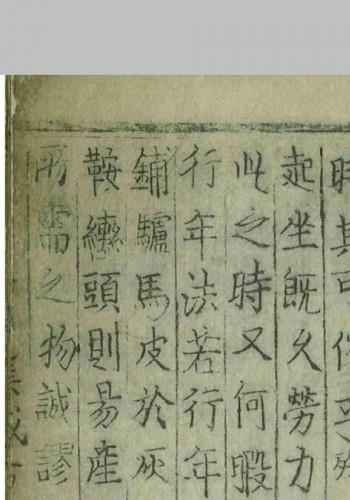 時其可
起坐既久勞力
此之時又何暇
行年法若行年
鋪驢馬皮於灰
鞍轡頭則易產
所需之物誠謬
集成方